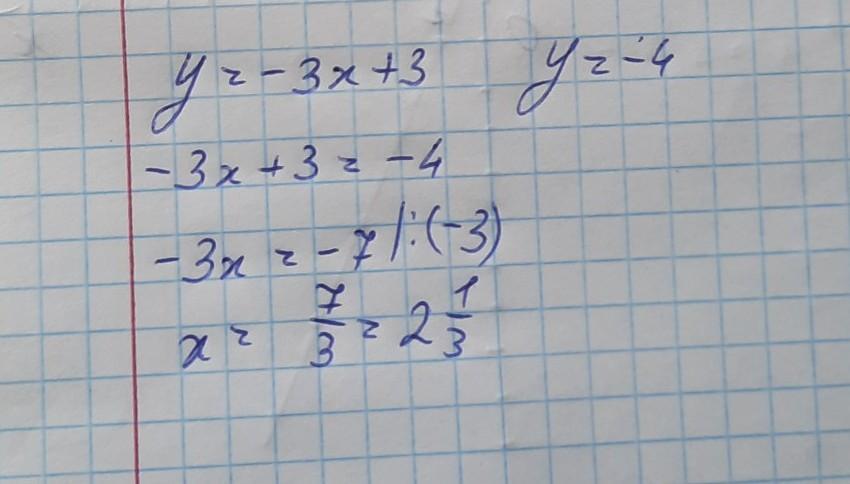 y = -3x + 3 y = -4
-3x + 3 = -4
-3x = -7 |:(-3)
x = 7/3 = 2 1/3